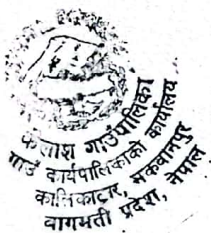 कैलाश गाउँपालिका
गाउँ कार्यपालिकाको कार्यालय
कालिकाटार, मकवानपुर
वागमती प्रदेश, नेपाल